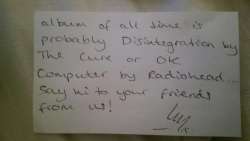 album of all time is
probably Disintegration by
The Cure or OK
Computer by Radiohead...
Say hi to your friends
from us!